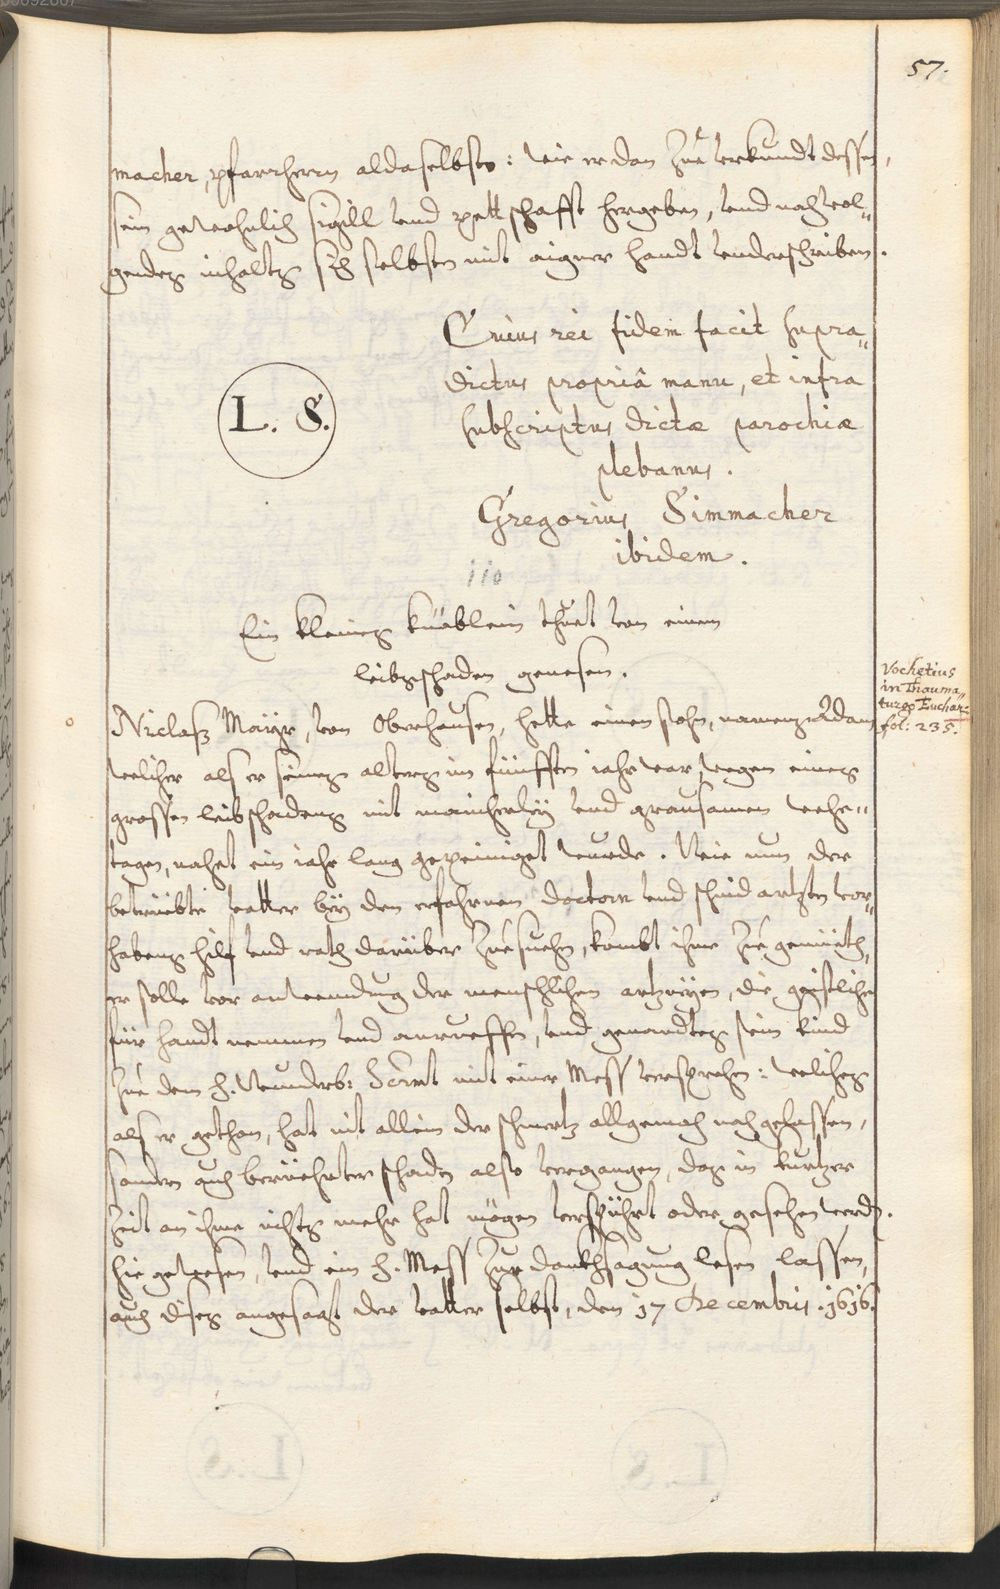 57.
macher, pfarrherrn aldaselbsten: wie er dan zue verkundt dessen,
sein gewohnlich sigill vnd pettschafft hergeben, vnd nachvol„
gendes inhalts sich selbsten mit aigner handt vnderschriben.
Cuius rei fidem facit supra„
dictus propriâ manu, et infra
subscriptus dictæ parochiæ
plebanus.
L. S.
Gregorius Simmacher
ibidem.
110
Ein kleines knäblein thuet von einem
leibsschaden genesen.
Vochetius
in Thauma„
turgo Euchar:
fol: 235.
Niclaß Mayr, von Oberhausen, hette einen sohn, namens Adam
welcher als er seines alters im fünfften iahr war, wegen eines
grossen leibschadens mit mancherleÿ vnd grausamen wehe„
tagen, nahet ein iahr lang gepeiniget wurde. Wie nun der
betriebte vatter beÿ den erfahrnen doctorn vnd schnid artzten vor„
habens hilf vnd rath darüber zue suchen, kombt ihme zue gemüeth,
er solle vor anwendung der menschlichen artzneÿen, die geistliche
für handt nemmen vnd anrueffen, vnd genandtes sein kind
zue dem H. Wunderb: Sacrament mit einer Mess versprechen: welches
als er gethan, hat nit allein der schmertz allgemach nachgelassen,
sonder auch beruehrter schaden also vergangen, das in kurtzer
zeit an ihme nichts mehr hat mögen verspührt oder gesehen werden.
hie gewesen, vnd ein H. Mess zur dankhsagung lesen lassen,
auch dises angesagt der vatter selbst, den 17 Decembris. 1616.